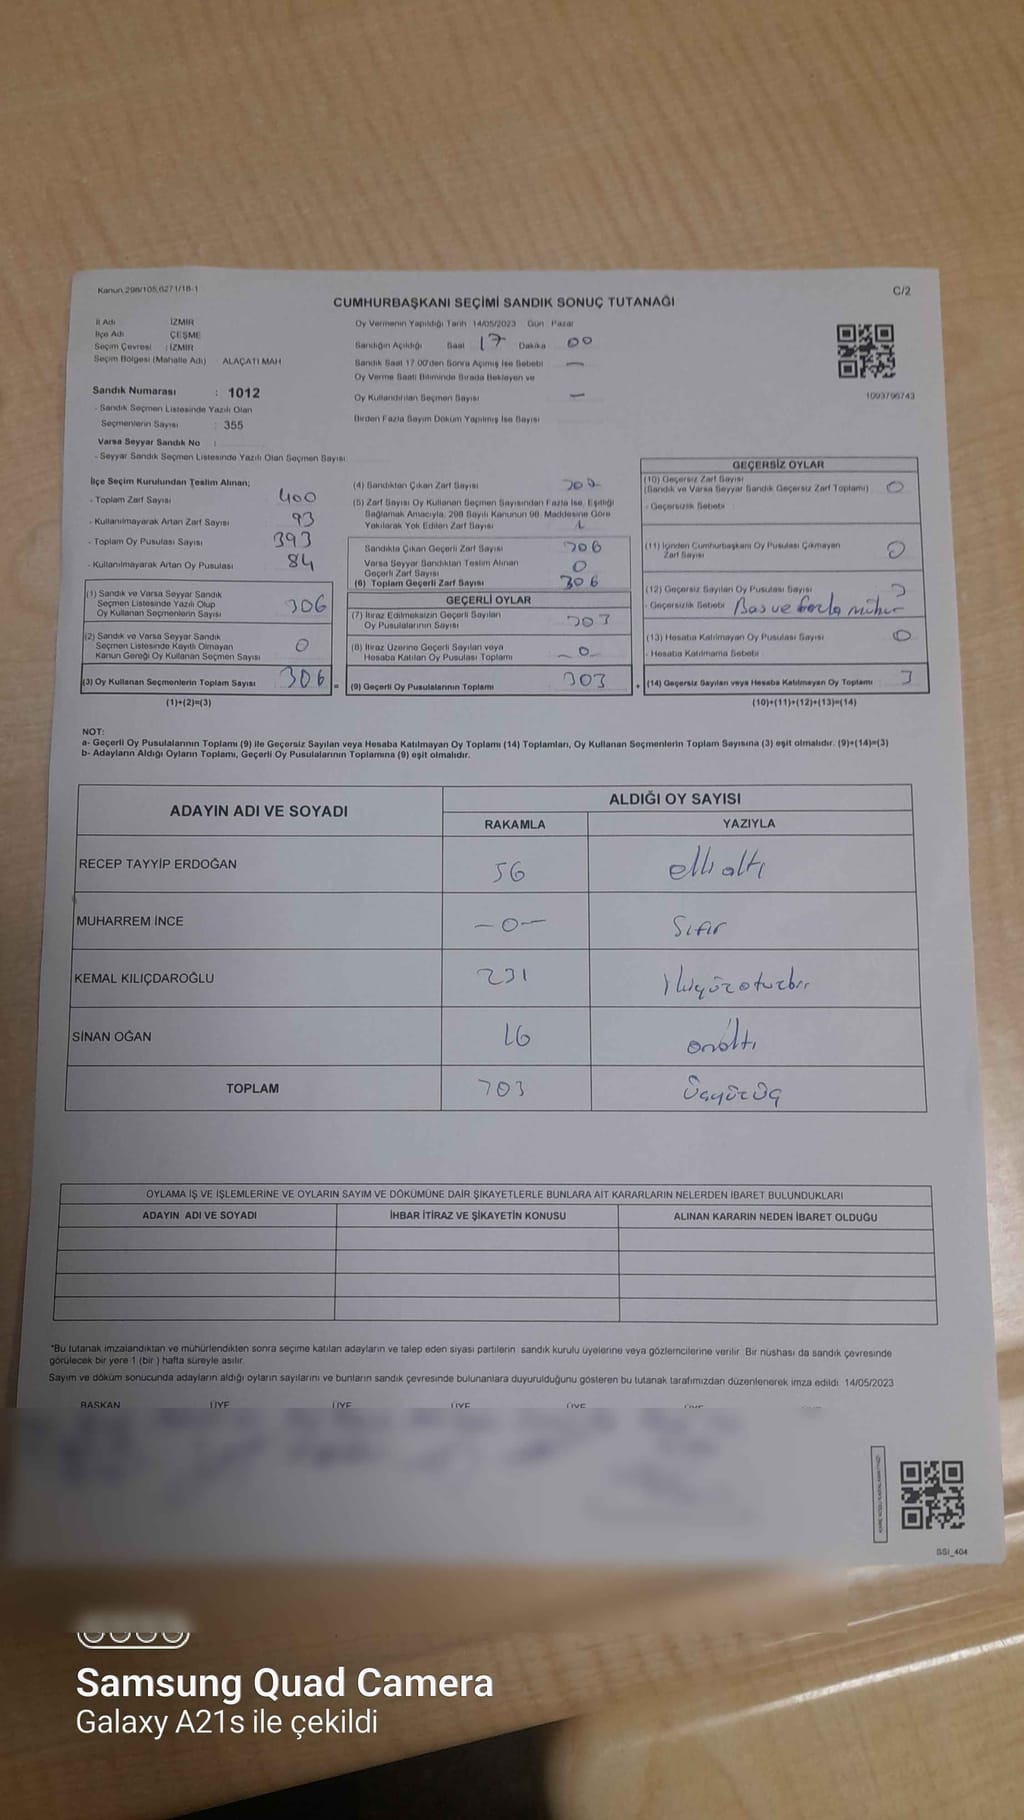 Kanun 298/105,6271/18-1
C/2
CUMHURBAŞKANI SEÇİMİ SANDIK SONUÇ TUTANAĞI
İl Adı İZMİR
İlçe Adı ÇEŞME
Seçim Çevresi : İZMİR
Seçim Bölgesi (Mahalle Adı) ALAÇATI MAH
Sandık Numarası : 1012
- Sandık Seçmen Listesinde Yazılı Olan
Seçmenlerin Sayısı : 355
Varsa Seyyar Sandık No :
- Seyyar Sandık Seçmen Listesinde Yazılı Olan Seçmen Sayısı:
Oy Vermenin Yapıldığı Tarih 14/05/2023 Gün Pazar
Sandığın Açıldığı Saat 17 Dakika 00
Sandık Saat 17.00'den Sonra Açılmış İse Sebebi —
Oy Verme Saati Bitiminde Sırada Bekleyen ve
Oy Kullandırılan Seçmen Sayısı —
Birden Fazla Sayım Döküm Yapılmış İse Sayısı
1093796743
İlçe Seçim Kurulundan Teslim Alınan;
- Toplam Zarf Sayısı 400
- Kullanılmayarak Artan Zarf Sayısı 93
- Toplam Oy Pusulası Sayısı 393
- Kullanılmayarak Artan Oy Pusulası 84
(1) Sandık ve Varsa Seyyar Sandık
Seçmen Listesinde Yazılı Olup
Oy Kullanan Seçmenlerin Sayısı 306
(2) Sandık ve Varsa Seyyar Sandık
Seçmen Listesinde Kayıtlı Olmayan
Kanun Gereği Oy Kullanan Seçmen Sayısı 0
(3) Oy Kullanan Seçmenlerin Toplam Sayısı 306 =
(1)+(2)=(3)
(4) Sandıktan Çıkan Zarf Sayısı
(5) Zarf Sayısı Oy Kullanan Seçmen Sayısından Fazla İse, Eşitliği
Sağlamak Amacıyla; 298 Sayılı Kanunun 98. Maddesine Göre
Yakılarak Yok Edilen Zarf Sayısı 1
Sandıkta Çıkan Geçerli Zarf Sayısı 306
Varsa Seyyar Sandıktan Teslim Alınan
Geçerli Zarf Sayısı 0
(6) Toplam Geçerli Zarf Sayısı 306
GEÇERLİ OYLAR
(7) İtiraz Edilmeksizin Geçerli Sayılan
Oy Pusulalarının Sayısı 303
(8) İtiraz Üzerine Geçerli Sayılan veya
Hesaba Katılan Oy Pusulası Toplamı -0-
(9) Geçerli Oy Pusulalarının Toplamı 303 +
GEÇERSİZ OYLAR
(10) Geçersiz Zarf Sayısı
(Sandık ve Varsa Seyyar Sandık Geçersiz Zarf Toplamı) 0
- Geçersizlik Sebebi :
(11) İçinden Cumhurbaşkanı Oy Pusulası Çıkmayan
Zarf Sayısı 0
(12) Geçersiz Sayılan Oy Pusulası Sayısı 3
- Geçersizlik Sebebi Boş ve fazla mühür
(13) Hesaba Katılmayan Oy Pusulası Sayısı 0
- Hesaba Katılmama Sebebi
(14) Geçersiz Sayılan veya Hesaba Katılmayan Oy Toplamı 3
(10)+(11)+(12)+(13)=(14)
NOT:
a- Geçerli Oy Pusulalarının Toplamı (9) ile Geçersiz Sayılan veya Hesaba Katılmayan Oy Toplamı (14) Toplamları, Oy Kullanan Seçmenlerin Toplam Sayısına (3) eşit olmalıdır. (9)+(14)=(3)
b- Adayların Aldığı Oyların Toplamı, Geçerli Oy Pusulalarının Toplamına (9) eşit olmalıdır.
ADAYIN ADI VE SOYADI
ALDIĞI OY SAYISI
RAKAMLA YAZIYLA
RECEP TAYYİP ERDOĞAN 56 elli altı
MUHARREM İNCE -0- Sıfır
KEMAL KILIÇDAROĞLU 231 İkiyüzotuzbir
SİNAN OĞAN 16 onaltı
TOPLAM 303 Üçyüzüç
OYLAMA İŞ VE İŞLEMLERİNE VE OYLARIN SAYIM VE DÖKÜMÜNE DAİR ŞİKAYETLERLE BUNLARA AİT KARARLARIN NELERDEN İBARET BULUNDUKLARI
ADAYIN ADI VE SOYADI İHBAR İTİRAZ VE ŞİKAYETİN KONUSU ALINAN KARARIN NEDEN İBARET OLDUĞU
*Bu tutanak imzalandıktan ve mühürlendikten sonra seçime katılan adayların ve talep eden siyasi partilerin sandık kurulu üyelerine veya gözlemcilerine verilir. Bir nüshası da sandık çevresinde
görülecek bir yere 1 (bir ) hafta süreyle asılır.
Sayım ve döküm sonucunda adayların aldığı oyların sayılarını ve bunların sandık çevresinde bulunanlara duyurulduğunu gösteren bu tutanak tarafımızdan düzenlenerek imza edildi. 14/05/2023
BAŞKAN ÜYE ÜYE ÜYE ÜYE
SSI_404
Samsung Quad Camera
Galaxy A21s ile çekildi